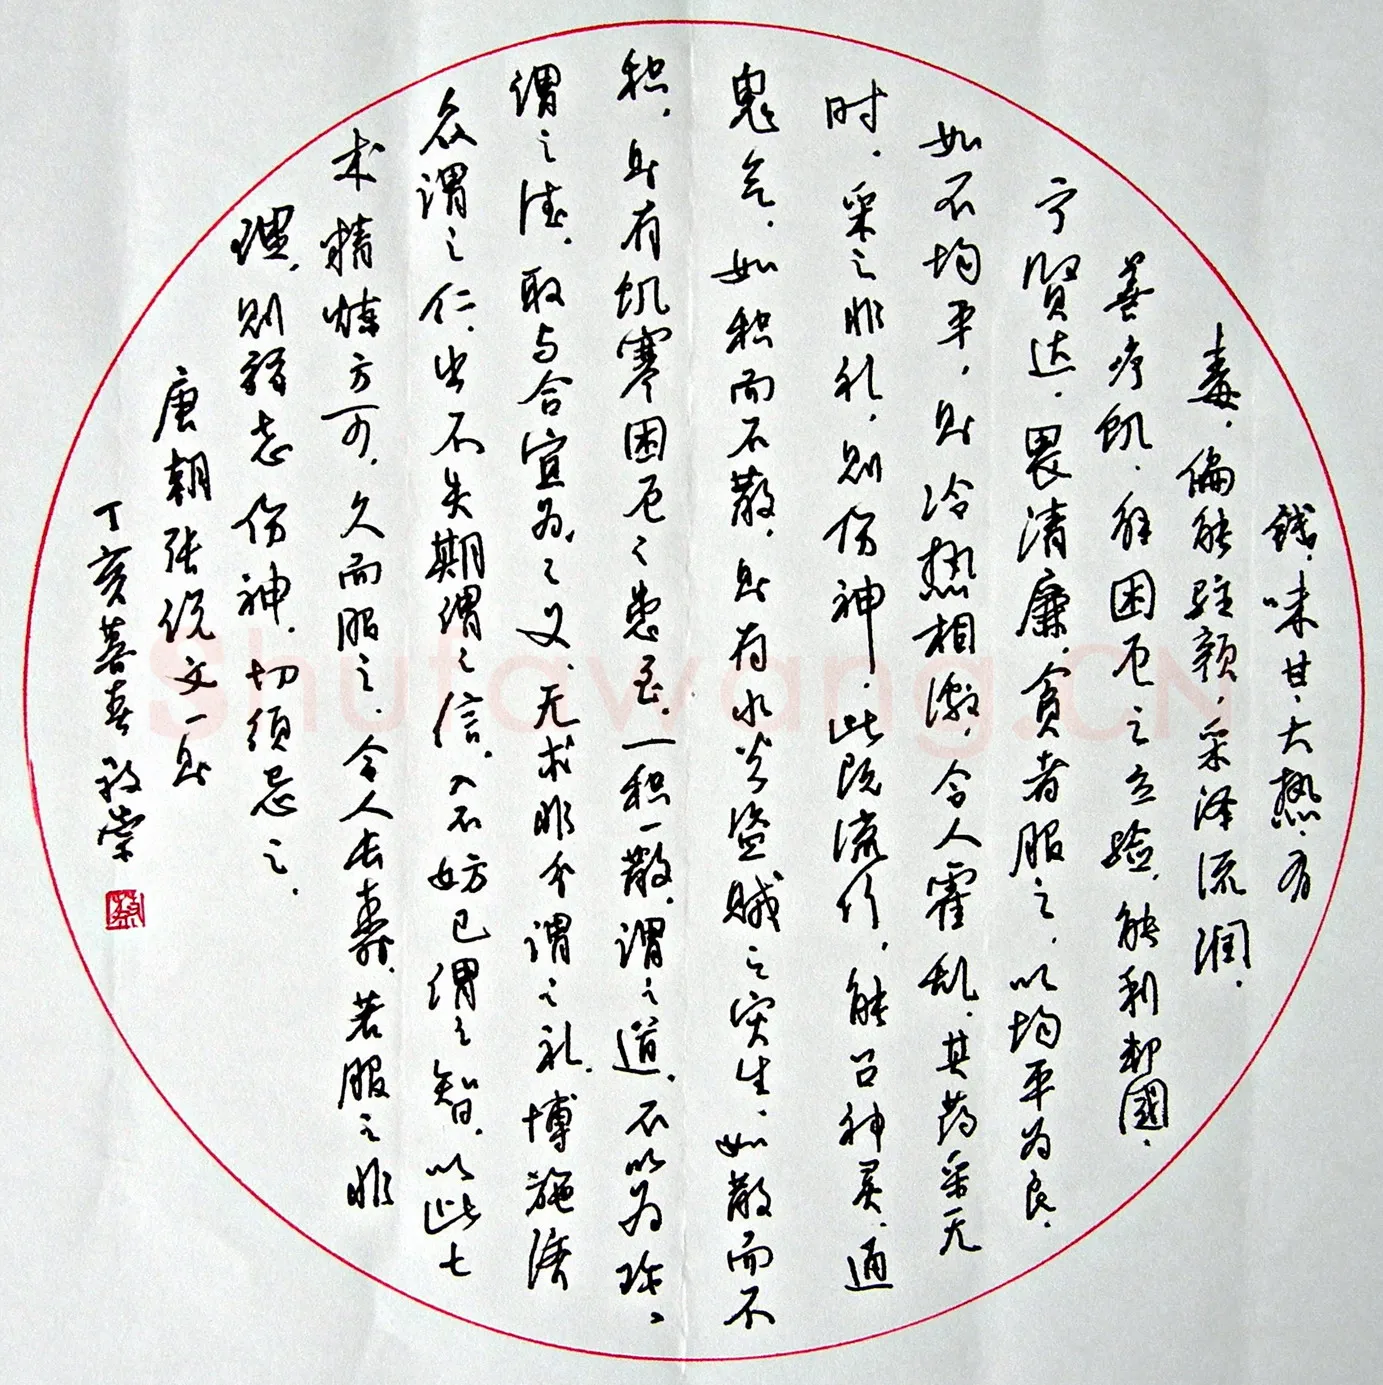 钱，味甘，大热，有
毒，偏能驻颜，采泽流润，
善疗饥，解困厄之立验，能利邦國，
宁贤达，畏清廉，贪者服之，以均平为良，
如不均平，则冷热相激，令人霍乱，其药采无
时，采之非礼，则伤神，此既流行，能召神灵，通
鬼气，如积而不散，则有水火盗贼之灾生，如散而不
积，则有饥寒困厄之患至，一积一散，谓之道，不以为珍，
谓之德，取与合宜为之义，无求非分谓之礼，博施济
众谓之仁，出不失期谓之信，入不妨己谓之智，以此七
术精炼方可，久而服之，令人长寿，若服之非
理，则弱志伤神，切须忌之，
唐朝张说文一则
丁亥暮春 敬崇
蔡
Shufawang.CN